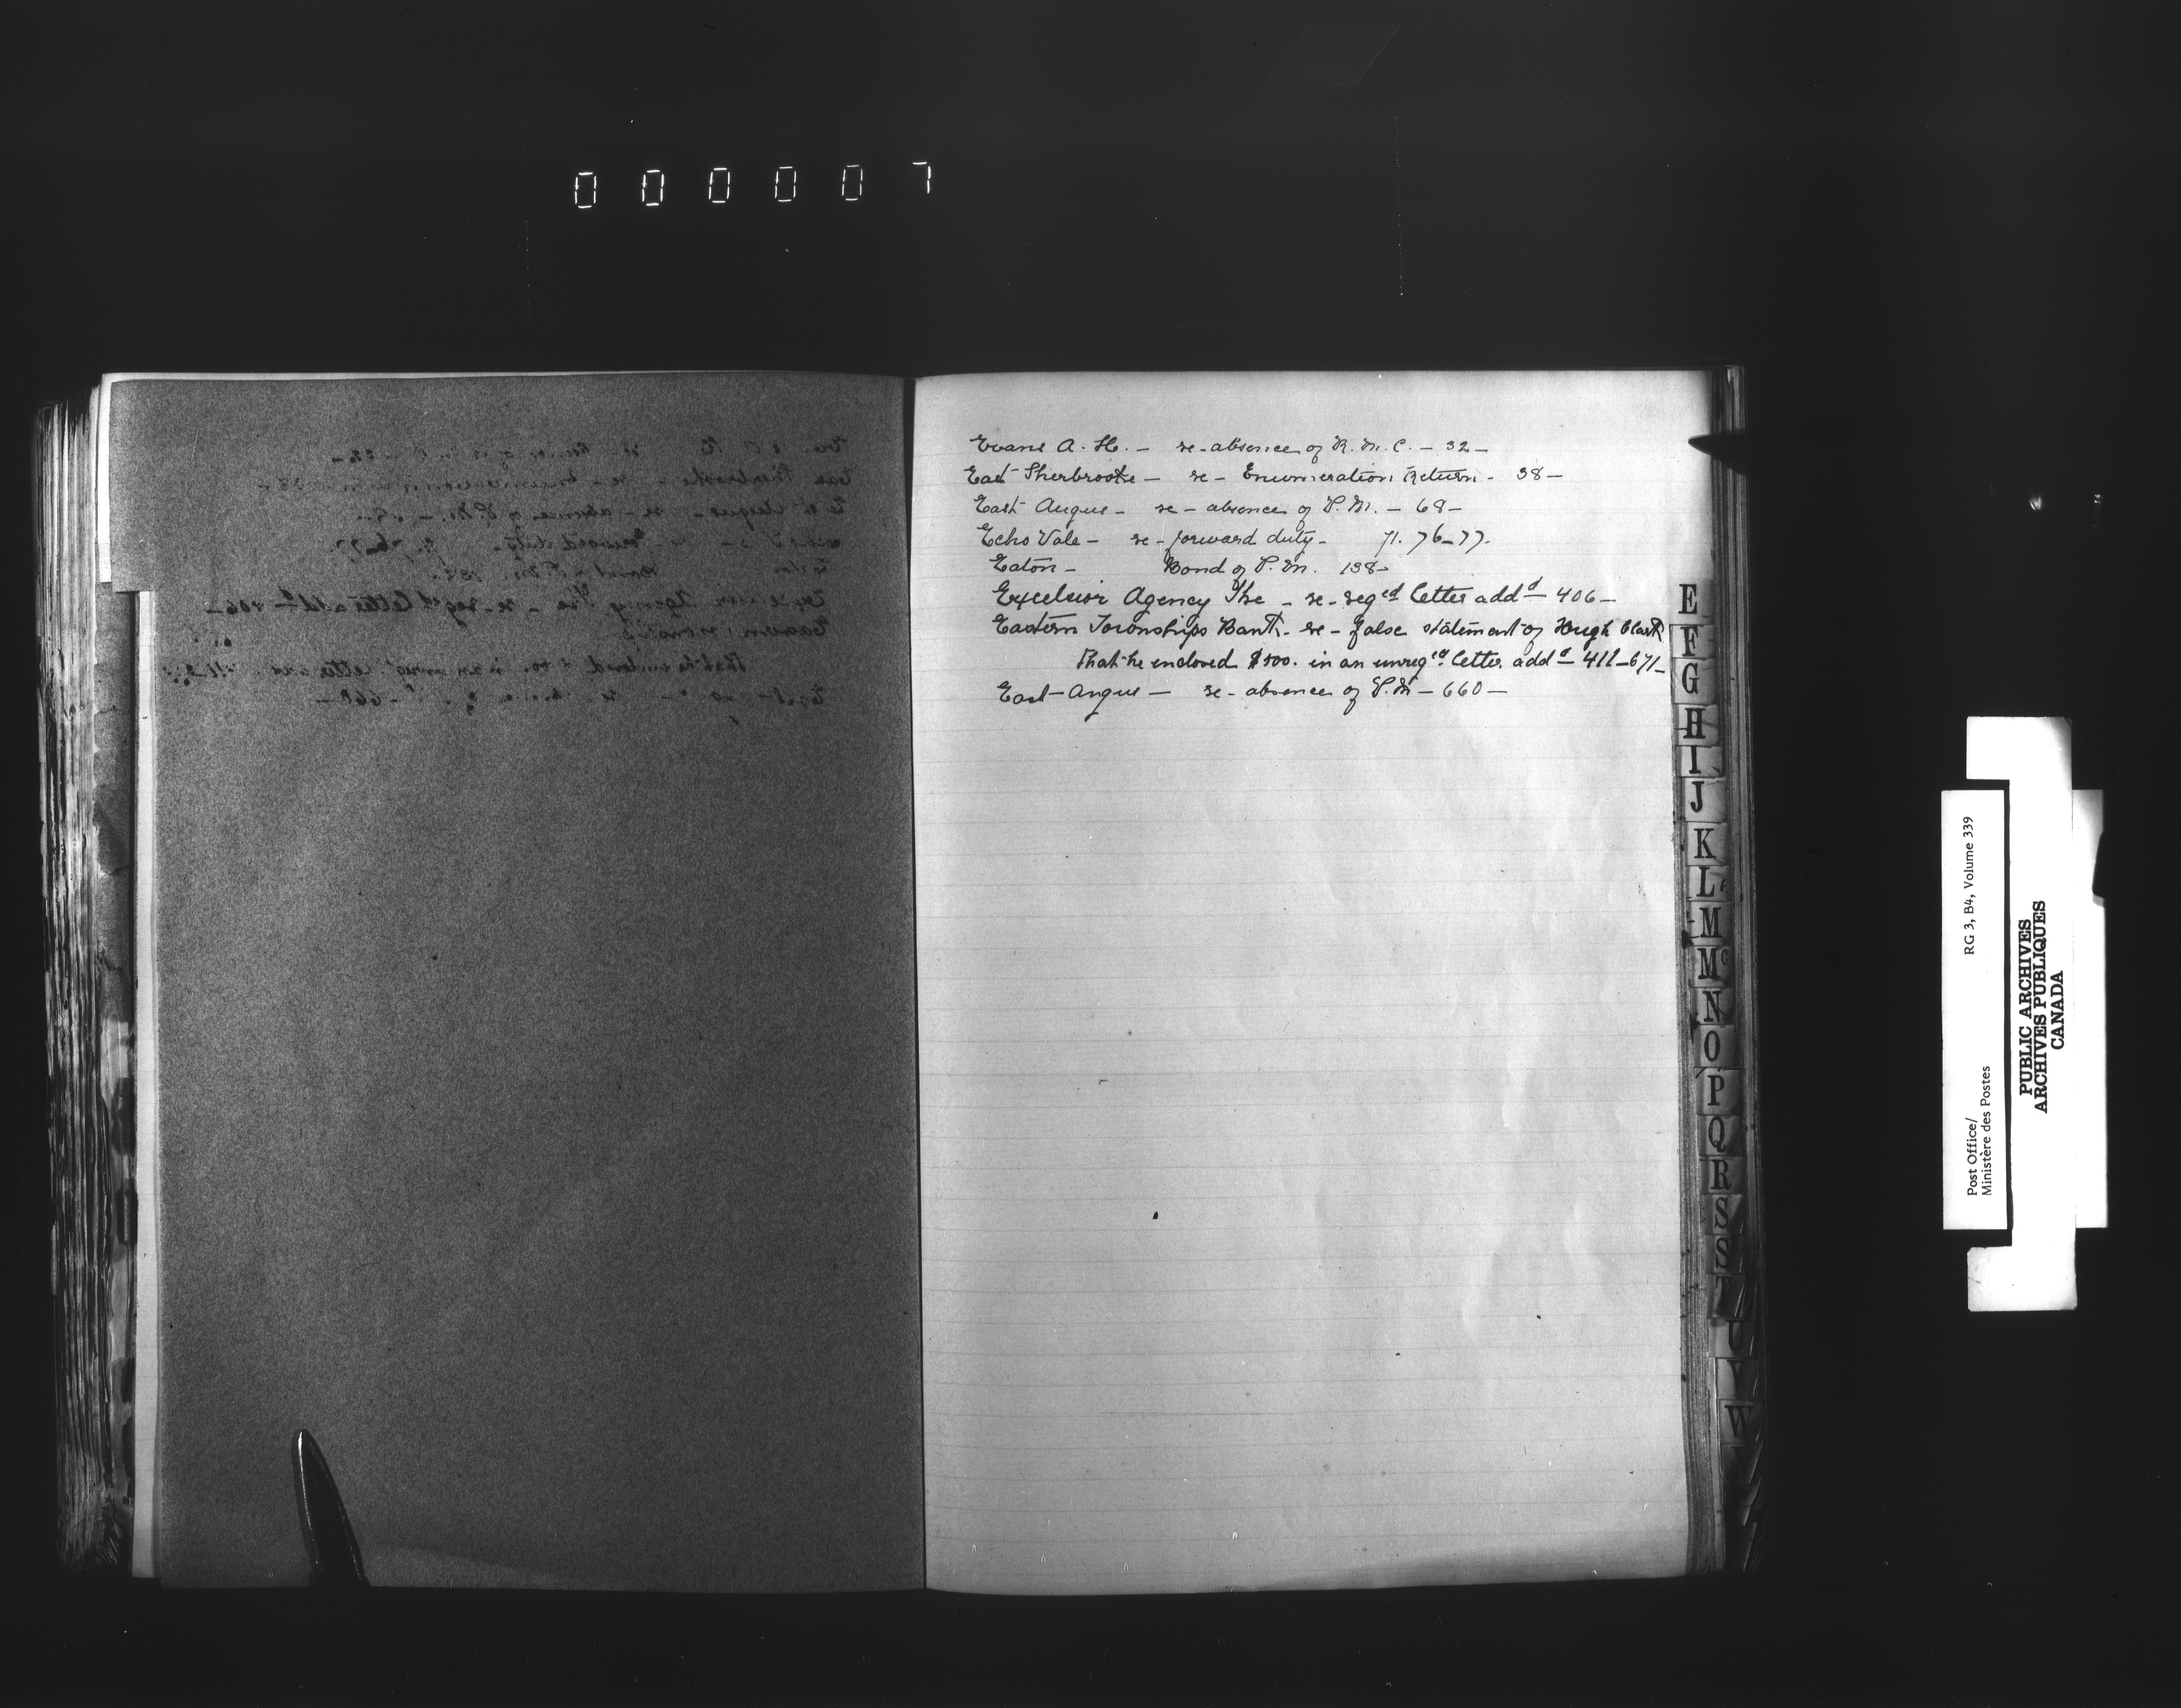 000007
Evans A. H. — re-absence of R. M. C. — 32 —
East Sherbrooke — re — Enumeration Return - 38 —
East Angus — re — absence of P. M. — 68 —
Echo Vale — re - forward duty — 71. 76-77.
Eaton — Bond of P. M. 138 —
Excelsior Agency The — re - reg^ed letter add^d — 406 —
Eastern Townships Bank — re — false statement of Hugh Clark
that he enclosed $500. in an unreg^ed letter add^d — 411 — 671 —
East Angus — re - absence of P. M — 660 —
E
F
G
H
I
J
K
L
M
Mc
N
O
P
Q
R
S
S
T
U
V
W
Post Office/
Ministère des Postes
RG 3, B4, Volume 339
PUBLIC ARCHIVES
ARCHIVES PUBLIQUES
CANADA